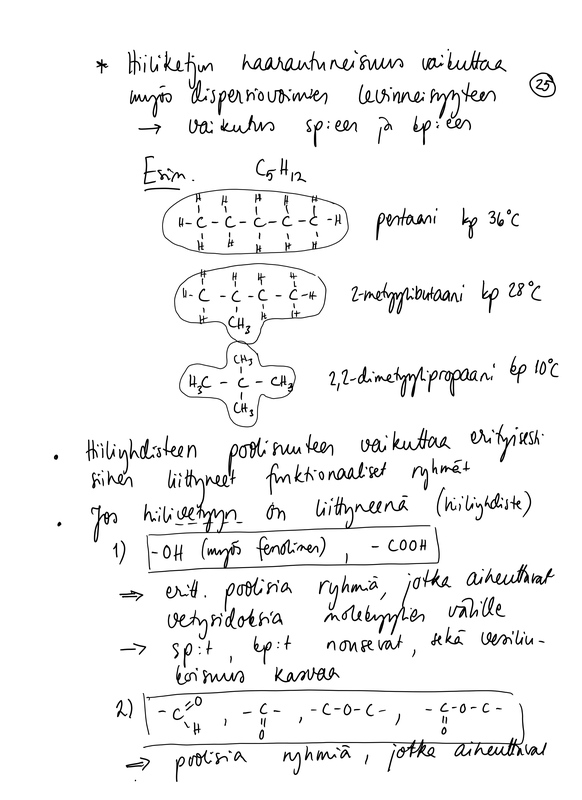 * Hiiliketjun haarautuneisuus vaikuttaa
myös dispersiovoimien levinneisyyteen
25
→ vaikutus sp:een ja kp:een
Esim. C5H12
H H H H H
H-C-C-C-C-C-H
H H H H H
pentaani kp 36°C
H H H H
H-C-C-C-C-H
H CH3 H H
2-metyylibutaani kp 28°C
CH3
H3C-C-CH3
CH3
2,2-dimetyylipropaani kp 10°C
• Hiiliyhdisteen poolisuuteen vaikuttaa erityisesti
siihen liittyneet funktionaaliset ryhmät
• Jos hiilivetyyn on liittyneenä (hiiliyhdiste)
1) -OH (myös fenolinen), -COOH
⇒ eritt. poolisia ryhmiä, jotka aiheuttavat
vetysidoksia molekyylien välille
→ sp:t, kp:t nousevat, sekä vesiliu-
koisuus kasvaa
2) -C=O H, -C- =O, -C-O-C-, -C-O-C- =O
⇒ poolisia ryhmiä, jotka aiheuttavat